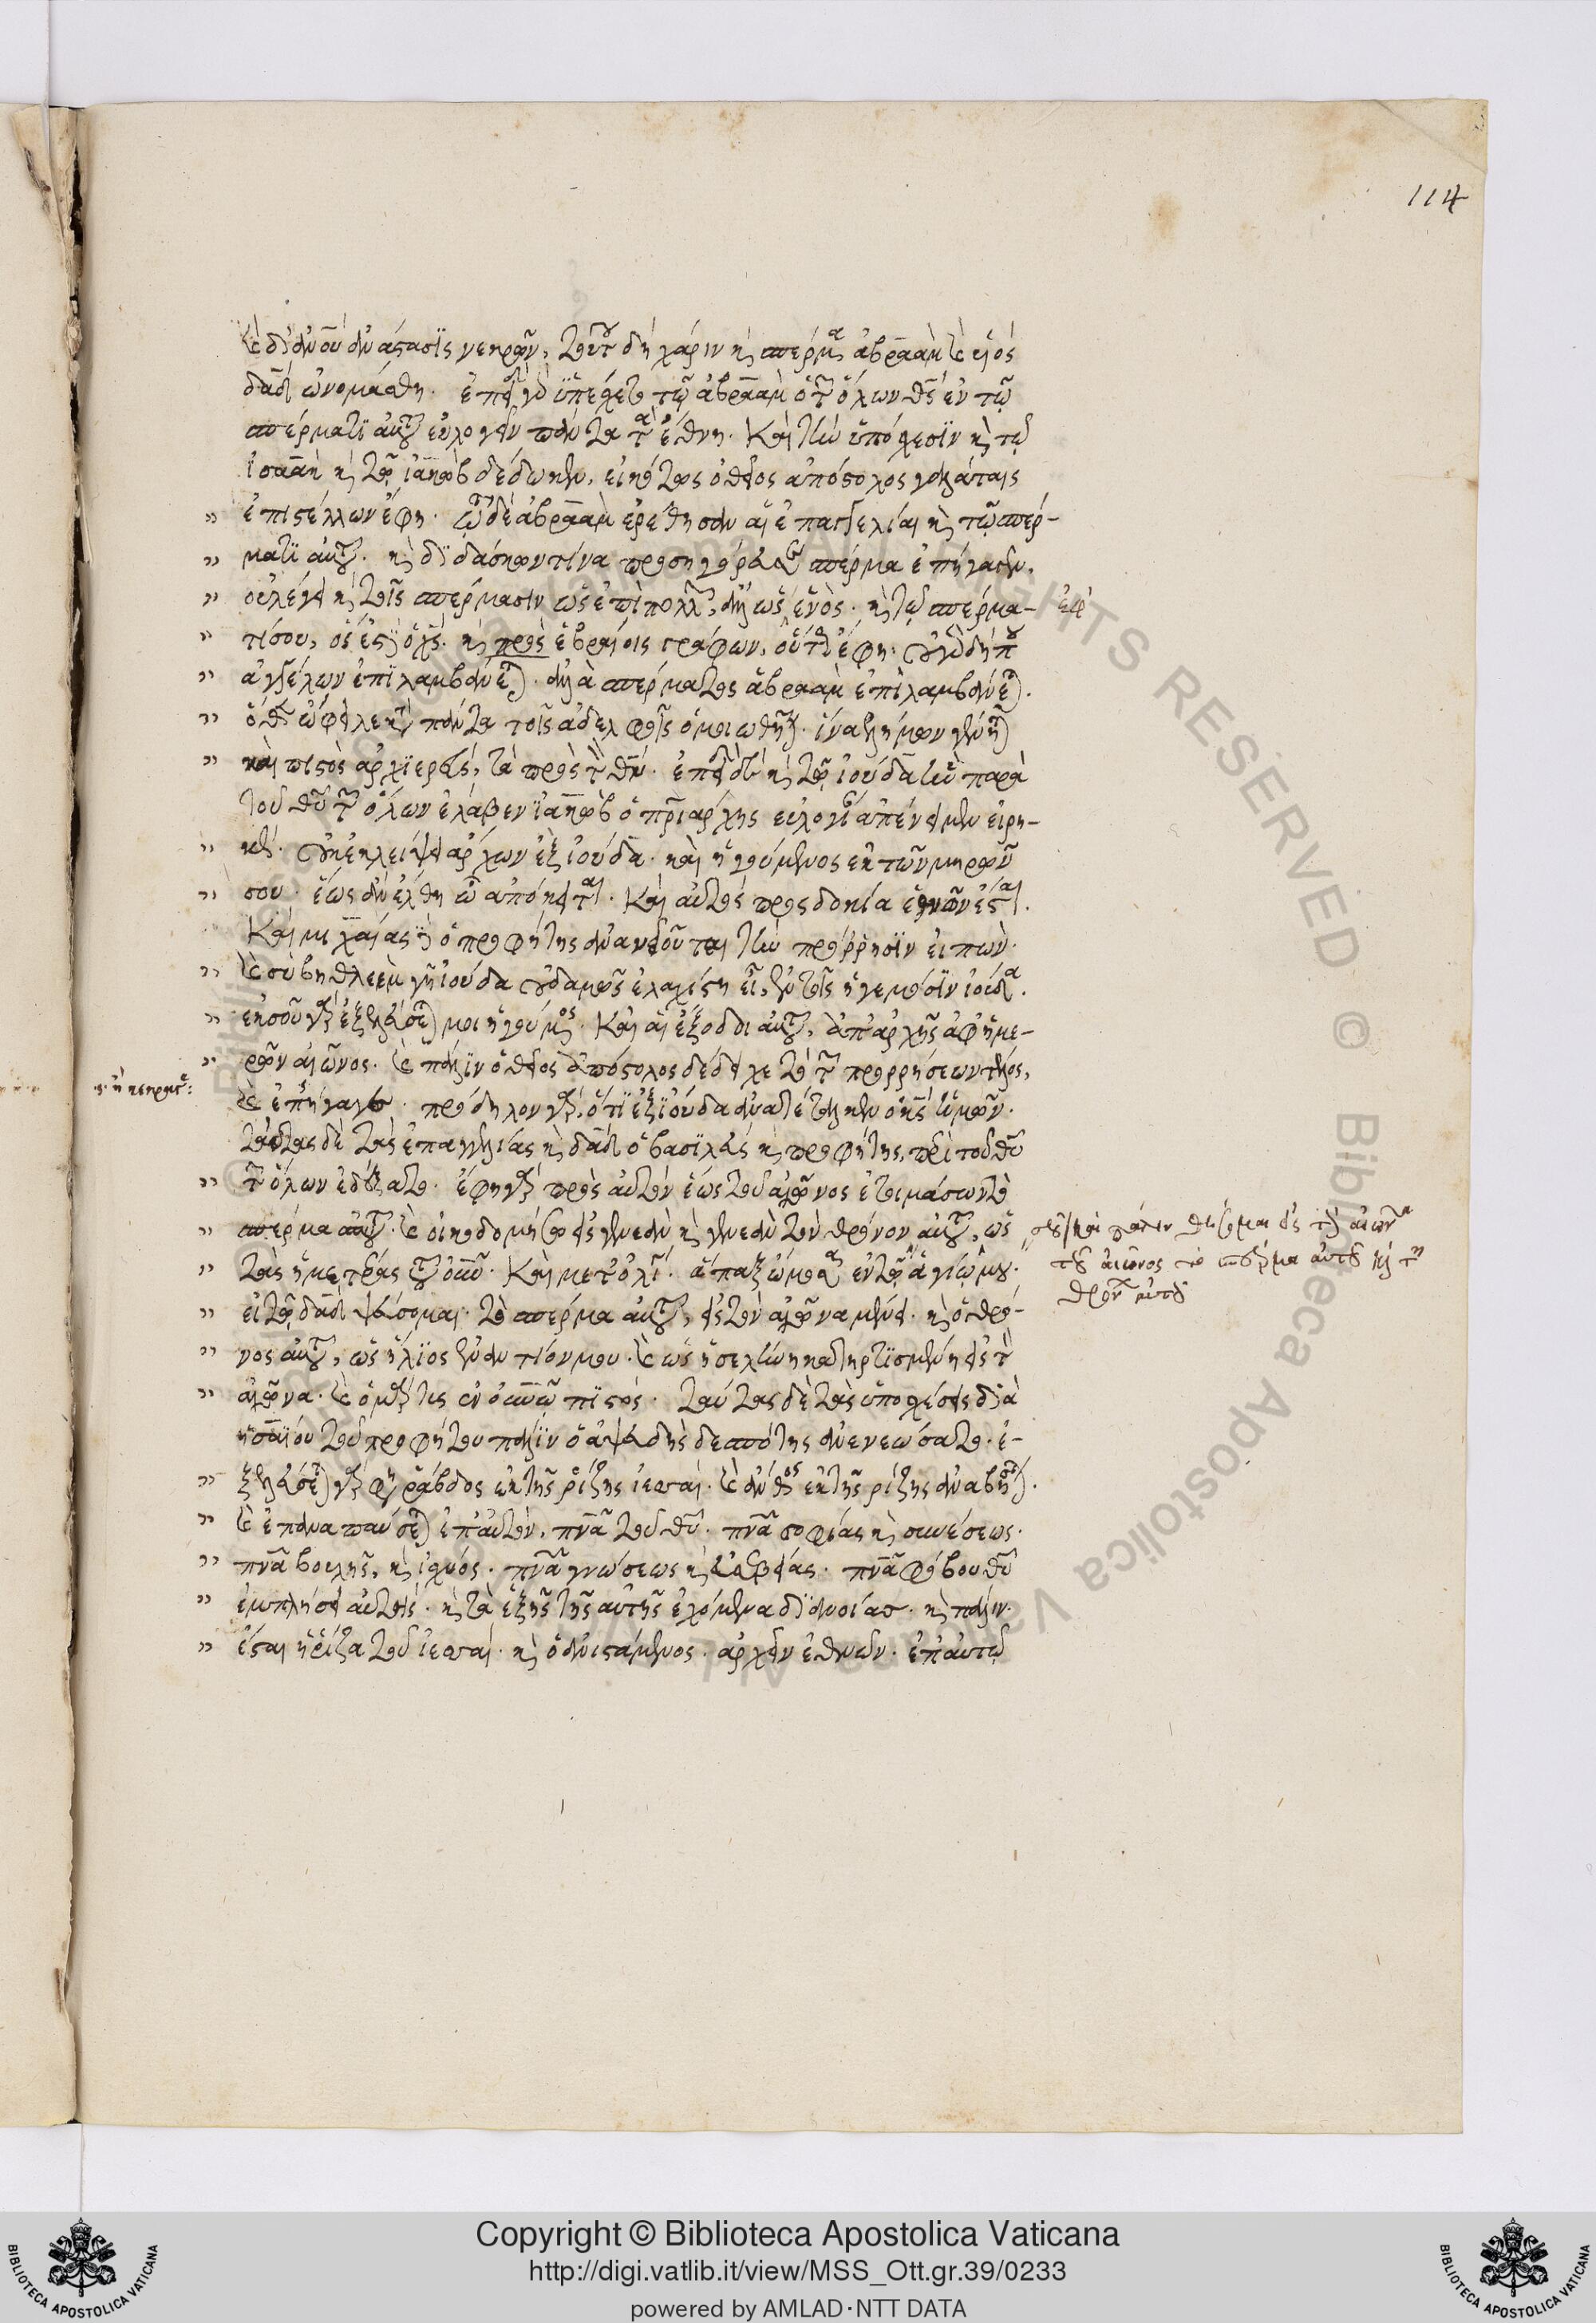 114
καὶ δι' ἀνοῦ ἀνάστασις νεκρῶν, τούτου δὴ χάριν καὶ σπέρμα ἀβραὰμ καὶ υἱὸς
δαδ ὠνομάσθη. ἐπειδὴ γὰρ ὑπέσχετο τῷ ἀβραὰμ ὁ τῶν ὅλων θς ἐν τῷ
σπέρματι αὐτοῦ εὐλογεῖν πάντα τὰ ἔθνη. Καὶ τὴν ὑπόσχεσιν καὶ τῷ
ἰσαὰκ καὶ τῷ ἰακὼβ δέδωκεν, εἰκότως ὁ θεῖος ἀπόστολος γαλάταις
ἐπιστέλλων ἔφη. τῷ δὲ ἀβραὰμ ἐρέθησαν αἱ ἐπαγγελίαι καὶ τῷ σπέρ-
ματι αὐτοῦ. καὶ διδάσκων τίνα προσηγόρευσε σπέρμα ἐπήγαγεν.
οὐ λέγει καὶ τοῖς σπέρμασιν ὡς ἐπὶ πολλῶν, ἀλλ' ὡς ἑνὸς. καὶ τῷ σπέρμα- ἐφ'
τί σου, ὅς ἐστιν ὁ χς. καὶ πρὸς ἑβραίοις γράφων, οὕτως ἔφη. οὐ γὰρ δήπου
ἀγγέλων ἐπιλαμβάνεται. ἀλλὰ σπέρματος ἀβραὰμ ἐπιλαμβάνεται.
ὅθεν ὤφειλε κατὰ πάντα τοῖς ἀδελφοῖς ὁμοιωθῆναι. ἵνα ἐλεήμων γένηται
καὶ πιστὸς ἀρχιερεύς, τὰ πρὸς τὸν θν. ἐπειδὴ δὲ καὶ τῷ ἰούδα τὴν παρὰ
τοῦ θυ τῶν ὅλων ἔλαβεν ἰακὼβ ὁ πριάρχης εὐλογίαν ἀπένειμεν εἰρη-
κώς. οὐκ ἐκλείψει ἄρχων ἐξ ἰούδα. καὶ ἡγούμενος ἐκ τῶν μηρῶν
σου. ἕως ἂν ἔλθη ᾧ ἀπόκειται. Καὶ αὐτὸς προσδοκία ἐθνῶν ἔσται.
Καὶ μιχαίας ὁ προφήτης ἀνανεοῦται τὴν πρόρρησιν εἰπὼν.
καὶ σὺ βηθλεὲμ γῆ ἰούδα οὐδαμῶς ἐλαχίστη εἶ, ἐν τοῖς ἡγεμόσιν ἰούδα.
ἐκ σοῦ γὰρ ἐξελεύσεται μοι ἡγούμενος. Καὶ αἱ ἔξοδοι αὐτοῦ, ἀπ' ἀρχῆς ἀφ' ἡμε-
ρῶν αἰῶνος. καὶ πάλιν ὁ θεῖος ἀπόστολος δέδειχε τὸ τῶν προρρήσεων τέλος,
καὶ ἐπήγαγε. πρόδηλον γὰρ, ὅτι ἐξ ἰούδα ἀνατέταλκεν ὁ κς ἡμῶν.
ταύτας δὲ τὰς ἐπαγγελίας καὶ δαδ ὁ βασιλεὺς καὶ προφήτης, παρὰ τοῦ θυ
τῶν ὅλων ἐδέξατο. ἔφη γὰρ πρὸς αὐτὸν ἕως τοῦ αἰῶνος ἑτοιμάσω τὸ
σπέρμα αὐτοῦ. καὶ οἰκοδομήσω εἰς γενεὰν καὶ γενεὰν τὸν θρόνον αὐτοῦ, ὡς
τὰς ἡμέρας τοῦ ουνου. Καὶ μετ' ὀλίγα. ἅπαξ ὤμοσα ἐν τῷ ἁγίῳ μου.
εἰ τῷ δαδ ψεύσομαι. τὸ σπέρμα αὐτοῦ, εἰς τὸν αἰῶνα μένει. καὶ ὁ θρό-
νος αὐτοῦ, ὡς ἥλιος ἐναντίον μου. καὶ ὡς ἡ σελήνη κατηρτισμένη εἰς τὸν
αἰῶνα. καὶ ὁ μάρτυς ἐν ουνῷ πιστός. ταύτας δὲ τὰς ὑποσχέσεις διὰ
ἡσαΐου τοῦ προφήτου πάλιν ὁ ἀψευδὴς δεσπότης ἀνενεώσατο. ἐ-
ξελεύσεται γάρ φη ῥάβδος ἐκ τῆς ῥίζης ἰεσσαί. καὶ ἄνθος ἐκ τῆς ρίζης ἀναβήσεται.
καὶ ἐπαναπαύσεται ἐπ' αὐτὸν, πνα τοῦ θυ. πνα σοφίας καὶ συνέσεως.
πνα βουλῆς, καὶ ἰσχύος. πνα γνώσεως καὶ εὐσεβείας. πνα φόβου θυ
ἐμπλήσει αὐτὸν. καὶ τὰ ἑξῆς τῆς αὐτῆς ἐχόμενα διανοίας. καὶ πάλιν.
ἔσται ἡ ῥίζα τοῦ ἰεσσαί. καὶ ὁ ἀνιστάμενος. ἄρχειν ἐθνῶν. ἐπ' αὐτῷ
καὶ πάλιν θήσομαι εἰς τὸν αἰῶνα
τοῦ αἰῶνος τὸ σπέρμα αὐτοῦ καὶ τὸν
θρόνον αὐτοῦ
Copyright © Biblioteca Apostolica Vaticana
http://digi.vatlib.it/view/MSS_Ott.gr.39/0233
powered by AMLAD·NTT DATA
BIBLIOTECA APOSTOLICA VATICANA
BIBLIOTECA APOSTOLICA VATICANA